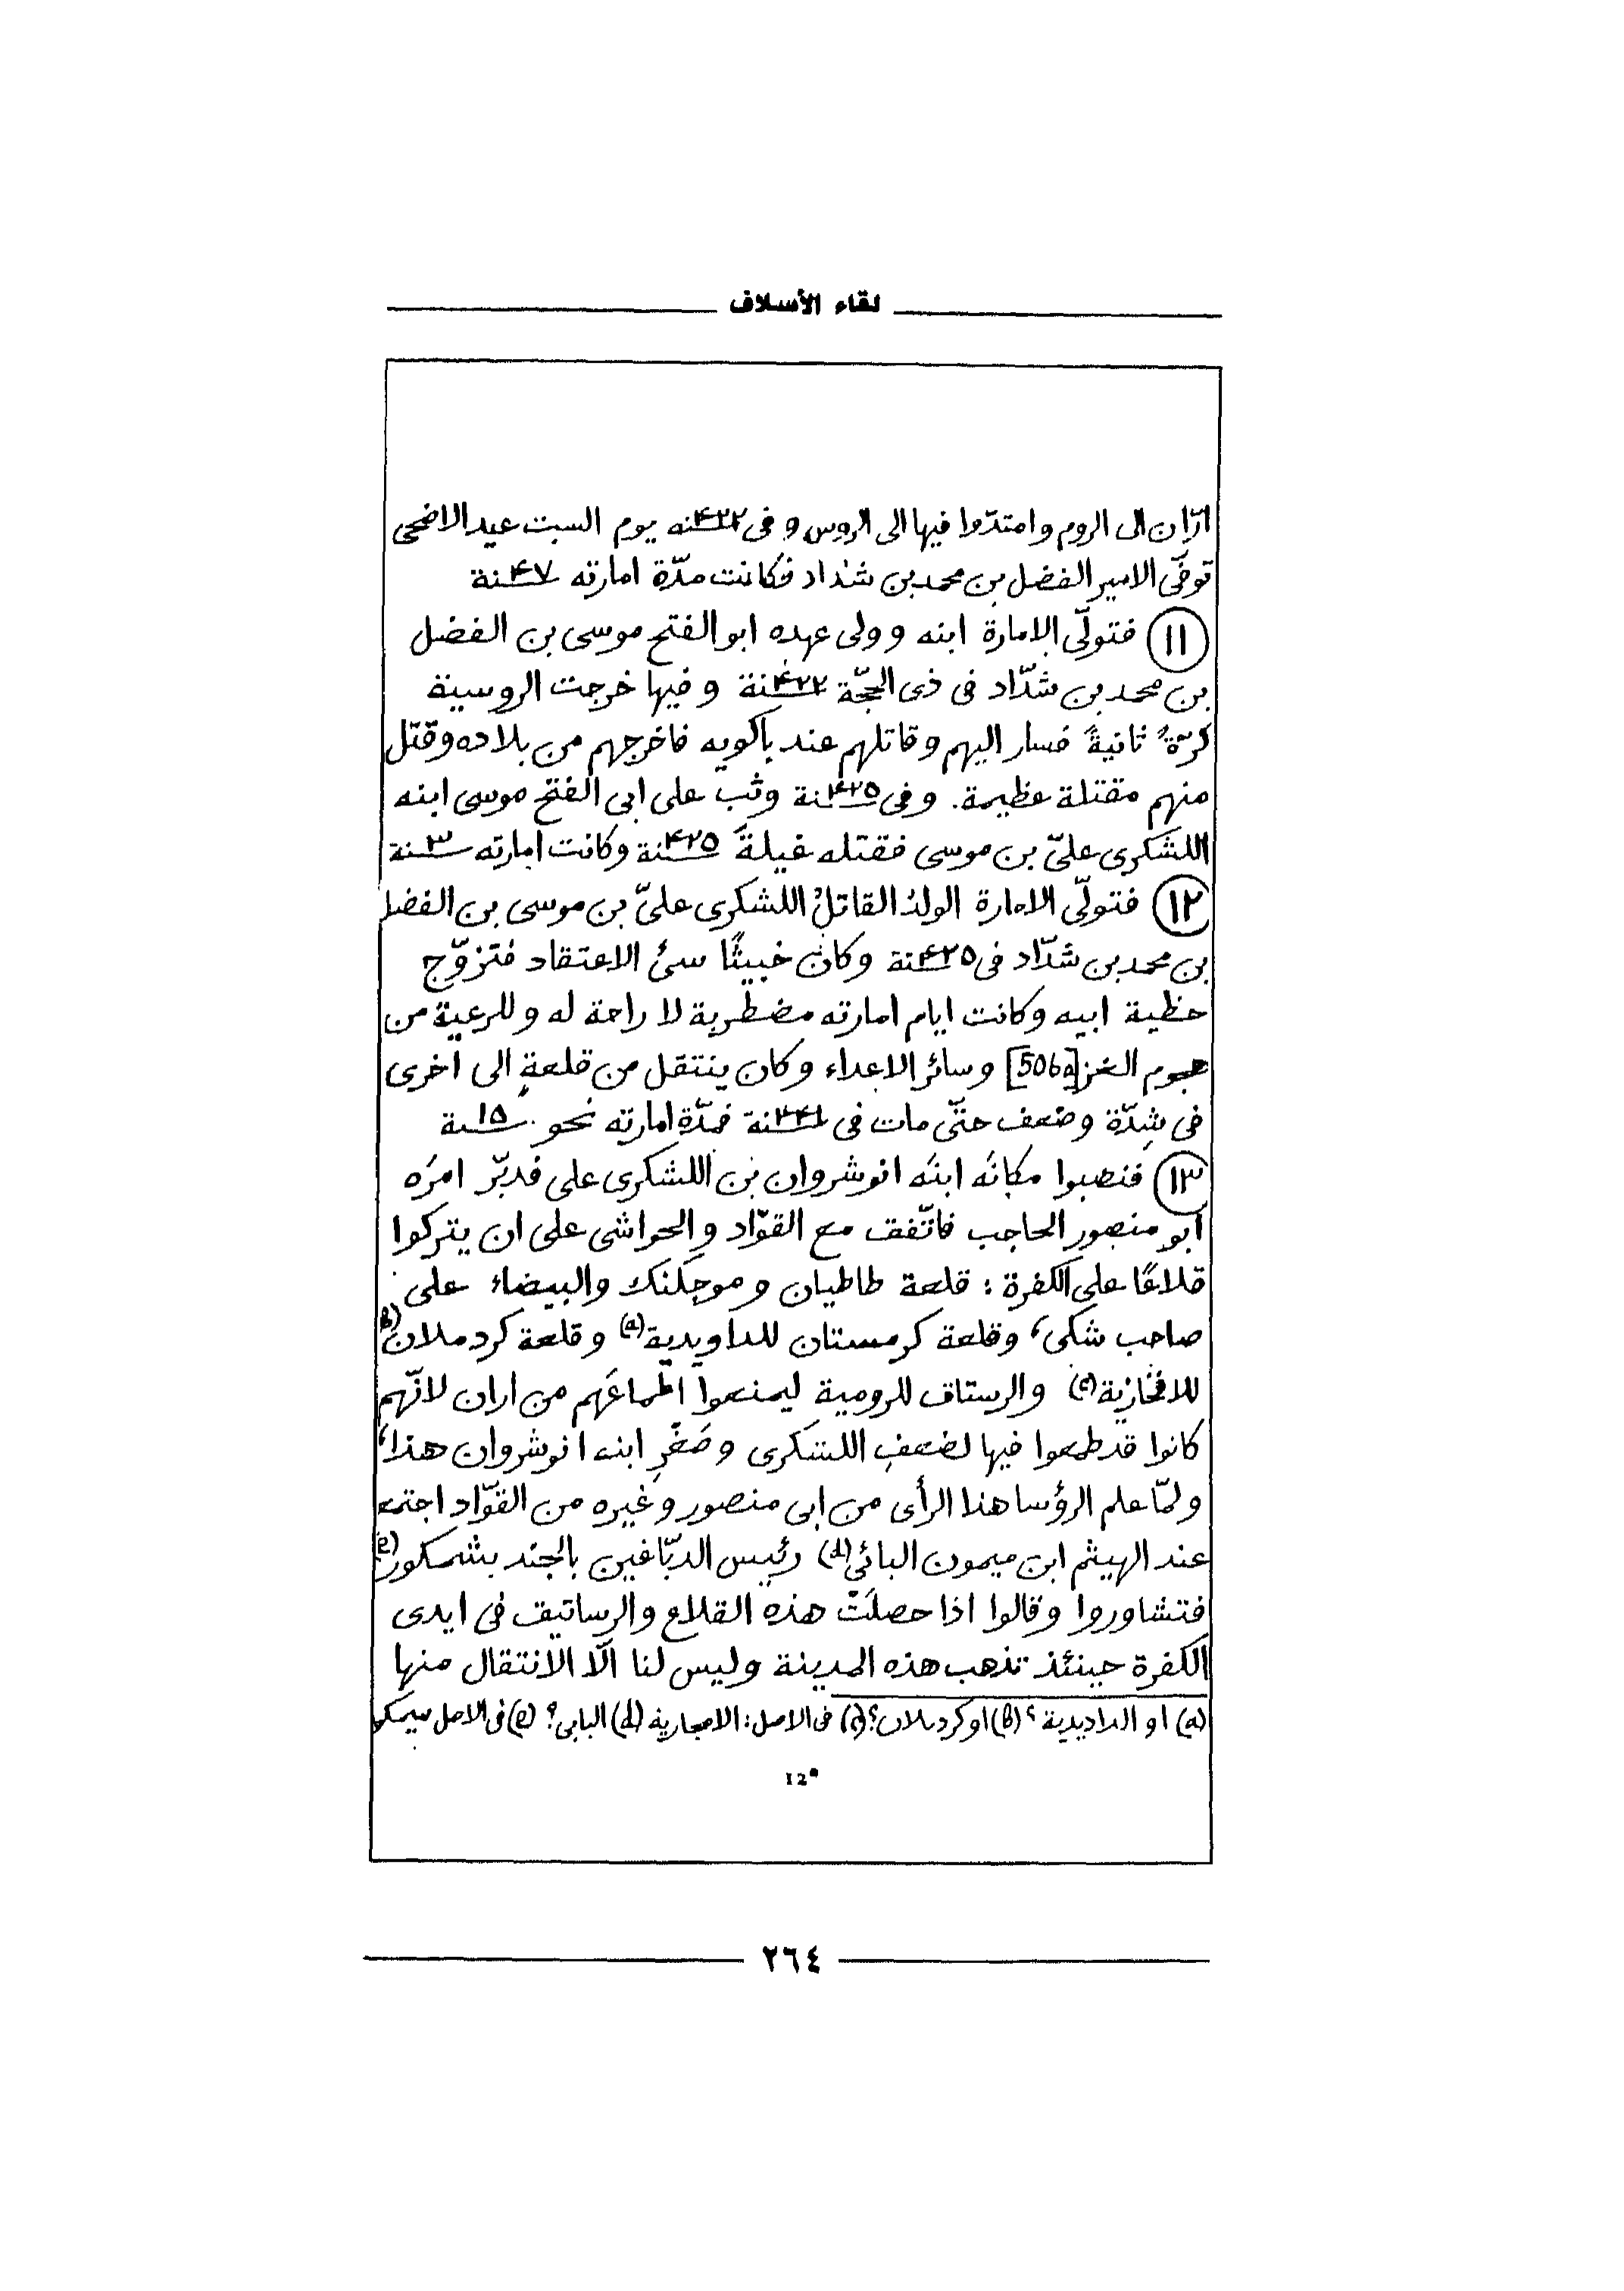 لقاء الأسلاف
ارّان الى الروم وامتدّوا فيها الى الروس و فى ۴۲۲ سنه يوم السبت عيد الاضحى
توفّى الامير الفضل بن محمد بن شداد فكانت مدّة امارته ۴۷ سنة
(۱۱) فتولّى الامارة ابنه و ولى عهده ابو الفتح موسى بن الفضل
بن محمد بن شدّاد فى ذى الحجّة ۴۲۲ سنة و فيها خرجت الروسية
كرّةً ثانيةً فسار اليهم وقاتلهم عند باكويه فاخرجهم من بلاده وقتل
منهم مقتلة عظيمة. و فى ۴۲۵ سنة وثب على ابى الفتح موسى ابنه
اللشكرى علىّ بن موسى فقتله غيلةً ۴۲۵ سنة وكانت امارته ۳ سنة
(۱۲) فتولّى الامارة الولدُ القاتلُ اللشكرى علىّ بن موسى بن الفضل
بن محمد بن شدّاد فى ۴۲۵ سنة وكان خبيثًا سئ الاعتقاد فتزوّج
حظية ابيه وكانت ايام امارته مضطربة لا راحة له و للرعية من
هجوم الغز [506a] وسائر الاعداء وكان ينتقل من قلعةٍ الى اخرى
فى شِدّة وضعف حتّى مات فى ۴۴۱ سنة فمدّة امارته نحو ۱۵ سنة
(۱۳) فنصبوا مكانَه ابنَه انوشروان بن اللشكرى على فدبّر امرَه
ابو منصور الحاجب فاتّفق مع القوّاد والحواشى على ان يتركوا
قلاعًا على الكفرة : قلعة طاطيان و موجكنك والبيضاء على
صاحب شكى، وقلعة كرمستان للداويدية (a) و قلعة كردملان (b)
للافخازية (c) والرستاق للرومية ليمنعوا اطماعَهم من اران لانّهم
كانوا قد طمعوا فيها لضعفِ اللشكرى وصَغَرِ ابنه انوشروان هذا،
ولمّا علم الرؤسا هذا الرأى من ابى منصور وغيره من القوّاد اجتمع
عند الهيثم ابن ميمون البائى (d) رئيس الدبّاغين بالجند بشمكور (e)
فتشاوروا وقالوا اذا حصلَتْ هذه القلاع والرساتيق فى ايدى
الكفرة حينئذ تذهب هذه المدينة وليس لنا الّا الانتقال منها
(a) او الداديدية ؟ (b) او كردىلان؟ (c) فى الاصل: الامجارية (d) البابى؟ (e) فى الاصل سيمكو
12*
٢٦٤